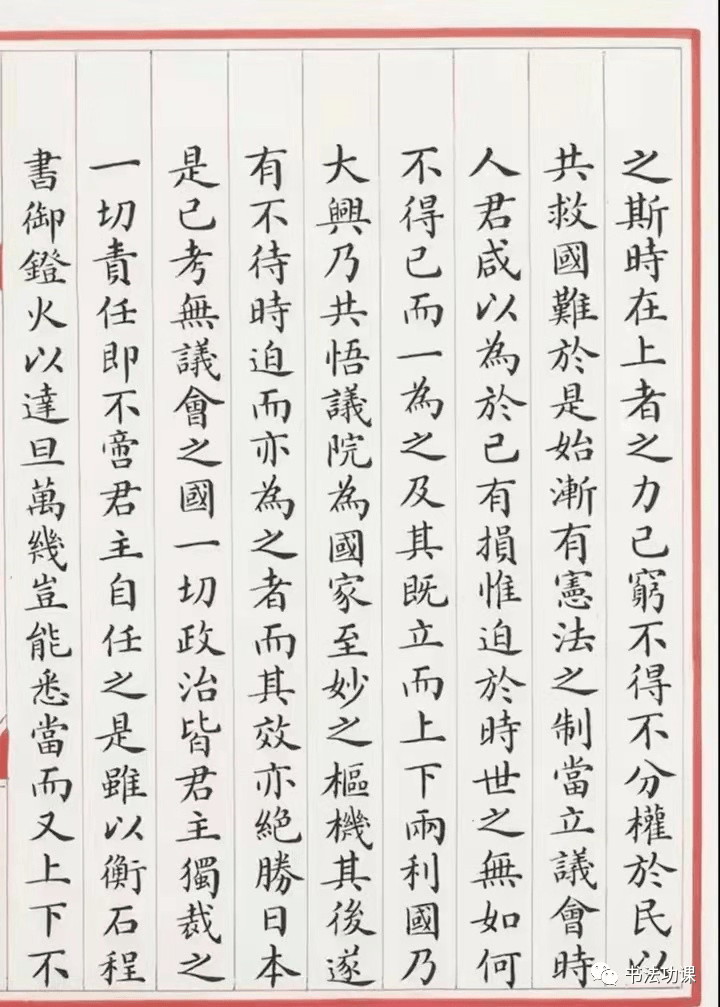 之斯時在上者之力已窮不得不分權於民以
共救國難於是始漸有憲法之制當立議會時
人君咸以為於己有損惟迫於時世之無如何
不得已而一為之及其既立而上下兩利國乃
大興乃共悟議院為國家至妙之樞機其後遂
有不待時迫而亦為之者而其效亦絕勝日本
是已考無議會之國一切政治皆君主獨裁之
一切責任即不啻君主自任之是雖以衡石程
書御鐙火以達旦萬幾豈能悉當而又上下不
书法功课